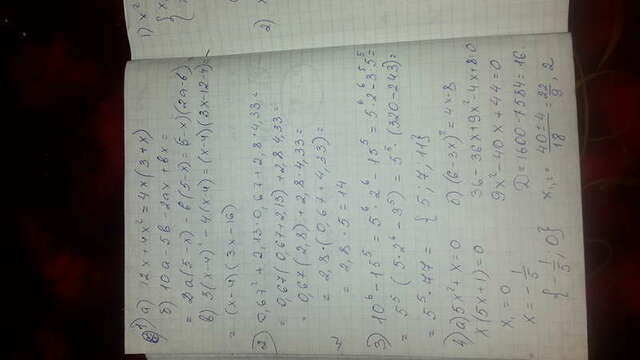 1) x²
{x
2)
1) а) 12x+4x² = 4x(3+x)
б) 10a-5b-2ax+bx =
= 2a(5-x)-b(5-x) = (5-x)(2a-b)
в) 3(x-4)²-4(x-4) = (x-4)(3x-12-4) =
= (x-4)(3x-16)
2) 0,67²+2,13·0,67+2,8·4,33 =
= 0,67(0,67+2,13)+2,8·4,33 =
= 0,67(2,8)+2,8·4,33 =
= 2,8·(0,67+4,33) =
= 2,8·5 = 14
3) 10⁶-15⁵ = 5⁶·2⁶-15⁵ = 5⁶·2⁶-3⁵·5⁵ =
= 5⁵(5·2⁶-3⁵) = 5⁵·(320-243) =
= 5⁵·77 = {5; 7; 11}
4) а) 5x²+x=0
x(5x+1)=0
x₁=0
x = -1/5
{-1/5; 0}
б) (6-3x)² = 4x-8
36-36x+9x²-4x+8=0
9x²-40x+44=0
D=1600-1584=16
x₁,₂ = 40±4/18 = 22/9; 2